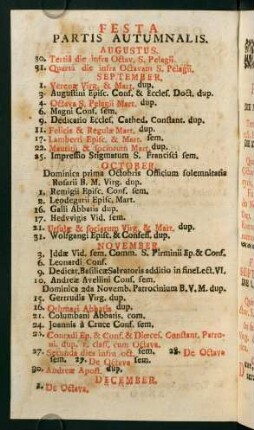 FESTA
PARTIS AUTUMNALIS.
AUGUSTUS.
30. Tertia die infra Octav. S. Pelagii.
31. Quarta die infra Octavam S. Pelagii.
SEPTEMBER.
1. Verenæ Virg. & Mart. dup.
3. Augustini Episc. Conf. & Eccles. Doct. dup.
4. Octava S. Pelagii Mart. dup.
6. Magni Conf. sem.
9. Dedicatio Eccles. Cathed. Constant. dup.
11. Felicis & Regulæ Mart. dup.
17. Lamberti Episc. & Mart. sem.
22. Mauritii & sociorum Mart. dup.
25. Impressio Stigmatum S. Francisci sem.
OCTOBER.
Dominica prima Octobris Officium solemnitatis
Rosarii B. M. Virg. dup.
1. Remigii Episc. Conf. sem.
2. Leodegarii Episc. Mart.
16. Galli Abbatis dup.
17. Hedvvigis Vid. sem.
21. Ursulæ & sociarum Virg. & Mart. dup.
31. Wolfgangi Episc. & Confess. dup.
NOVEMBER.
3. Iddæ Vid. sem. Comm. S. Pirminii Ep. & Conf.
6. Leonardi Conf.
9. Dedicat. Basilicæ Salvatoris additio in fine Lect. VI.
10. Andreæ Avellini Conf. sem.
Dominica 2da Novemb. Patrocinium B. V. M. dup.
15. Gertrudis Virg. dup.
16. Othmari Abbatis dup.
21. Columbani Abbatis, com.
24. Joannis à Cruce Conf. sem.
26. Conradi Ep. & Conf. & Diœces. Constant. Patro-
ni. dup. 1. class. cum Octava.
27. Secunda dies infra oct. sem. 28. De Octava
sem. 29. De Octava sem.
30. Andreæ Apost. dup.
DECEMBER.
2. De Octava.